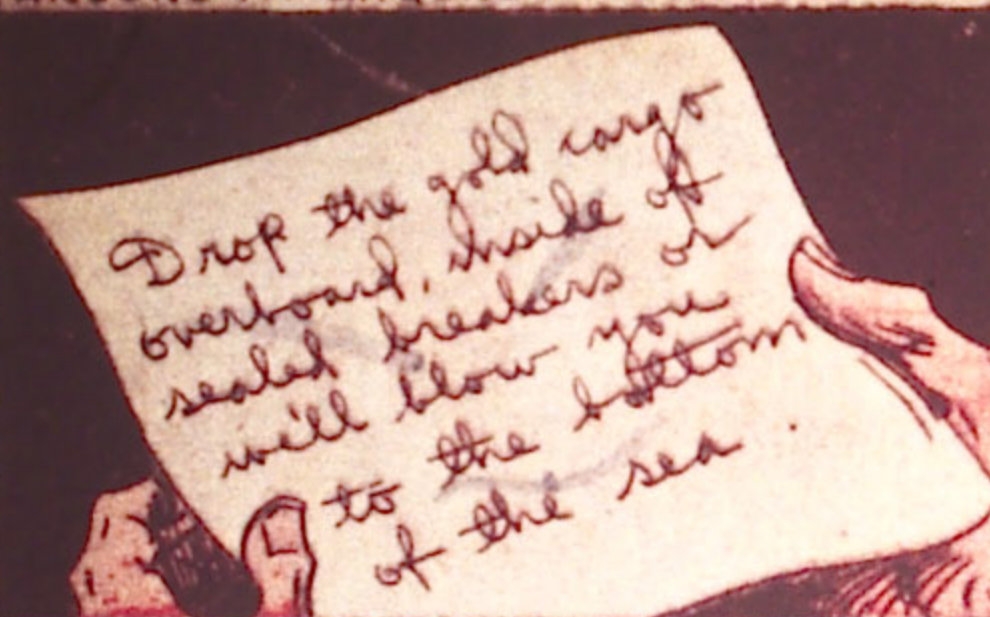 Drop the gold cargo
overboard, inside of
sealed breakers or
we'll blow you
to the bottom
of the sea.